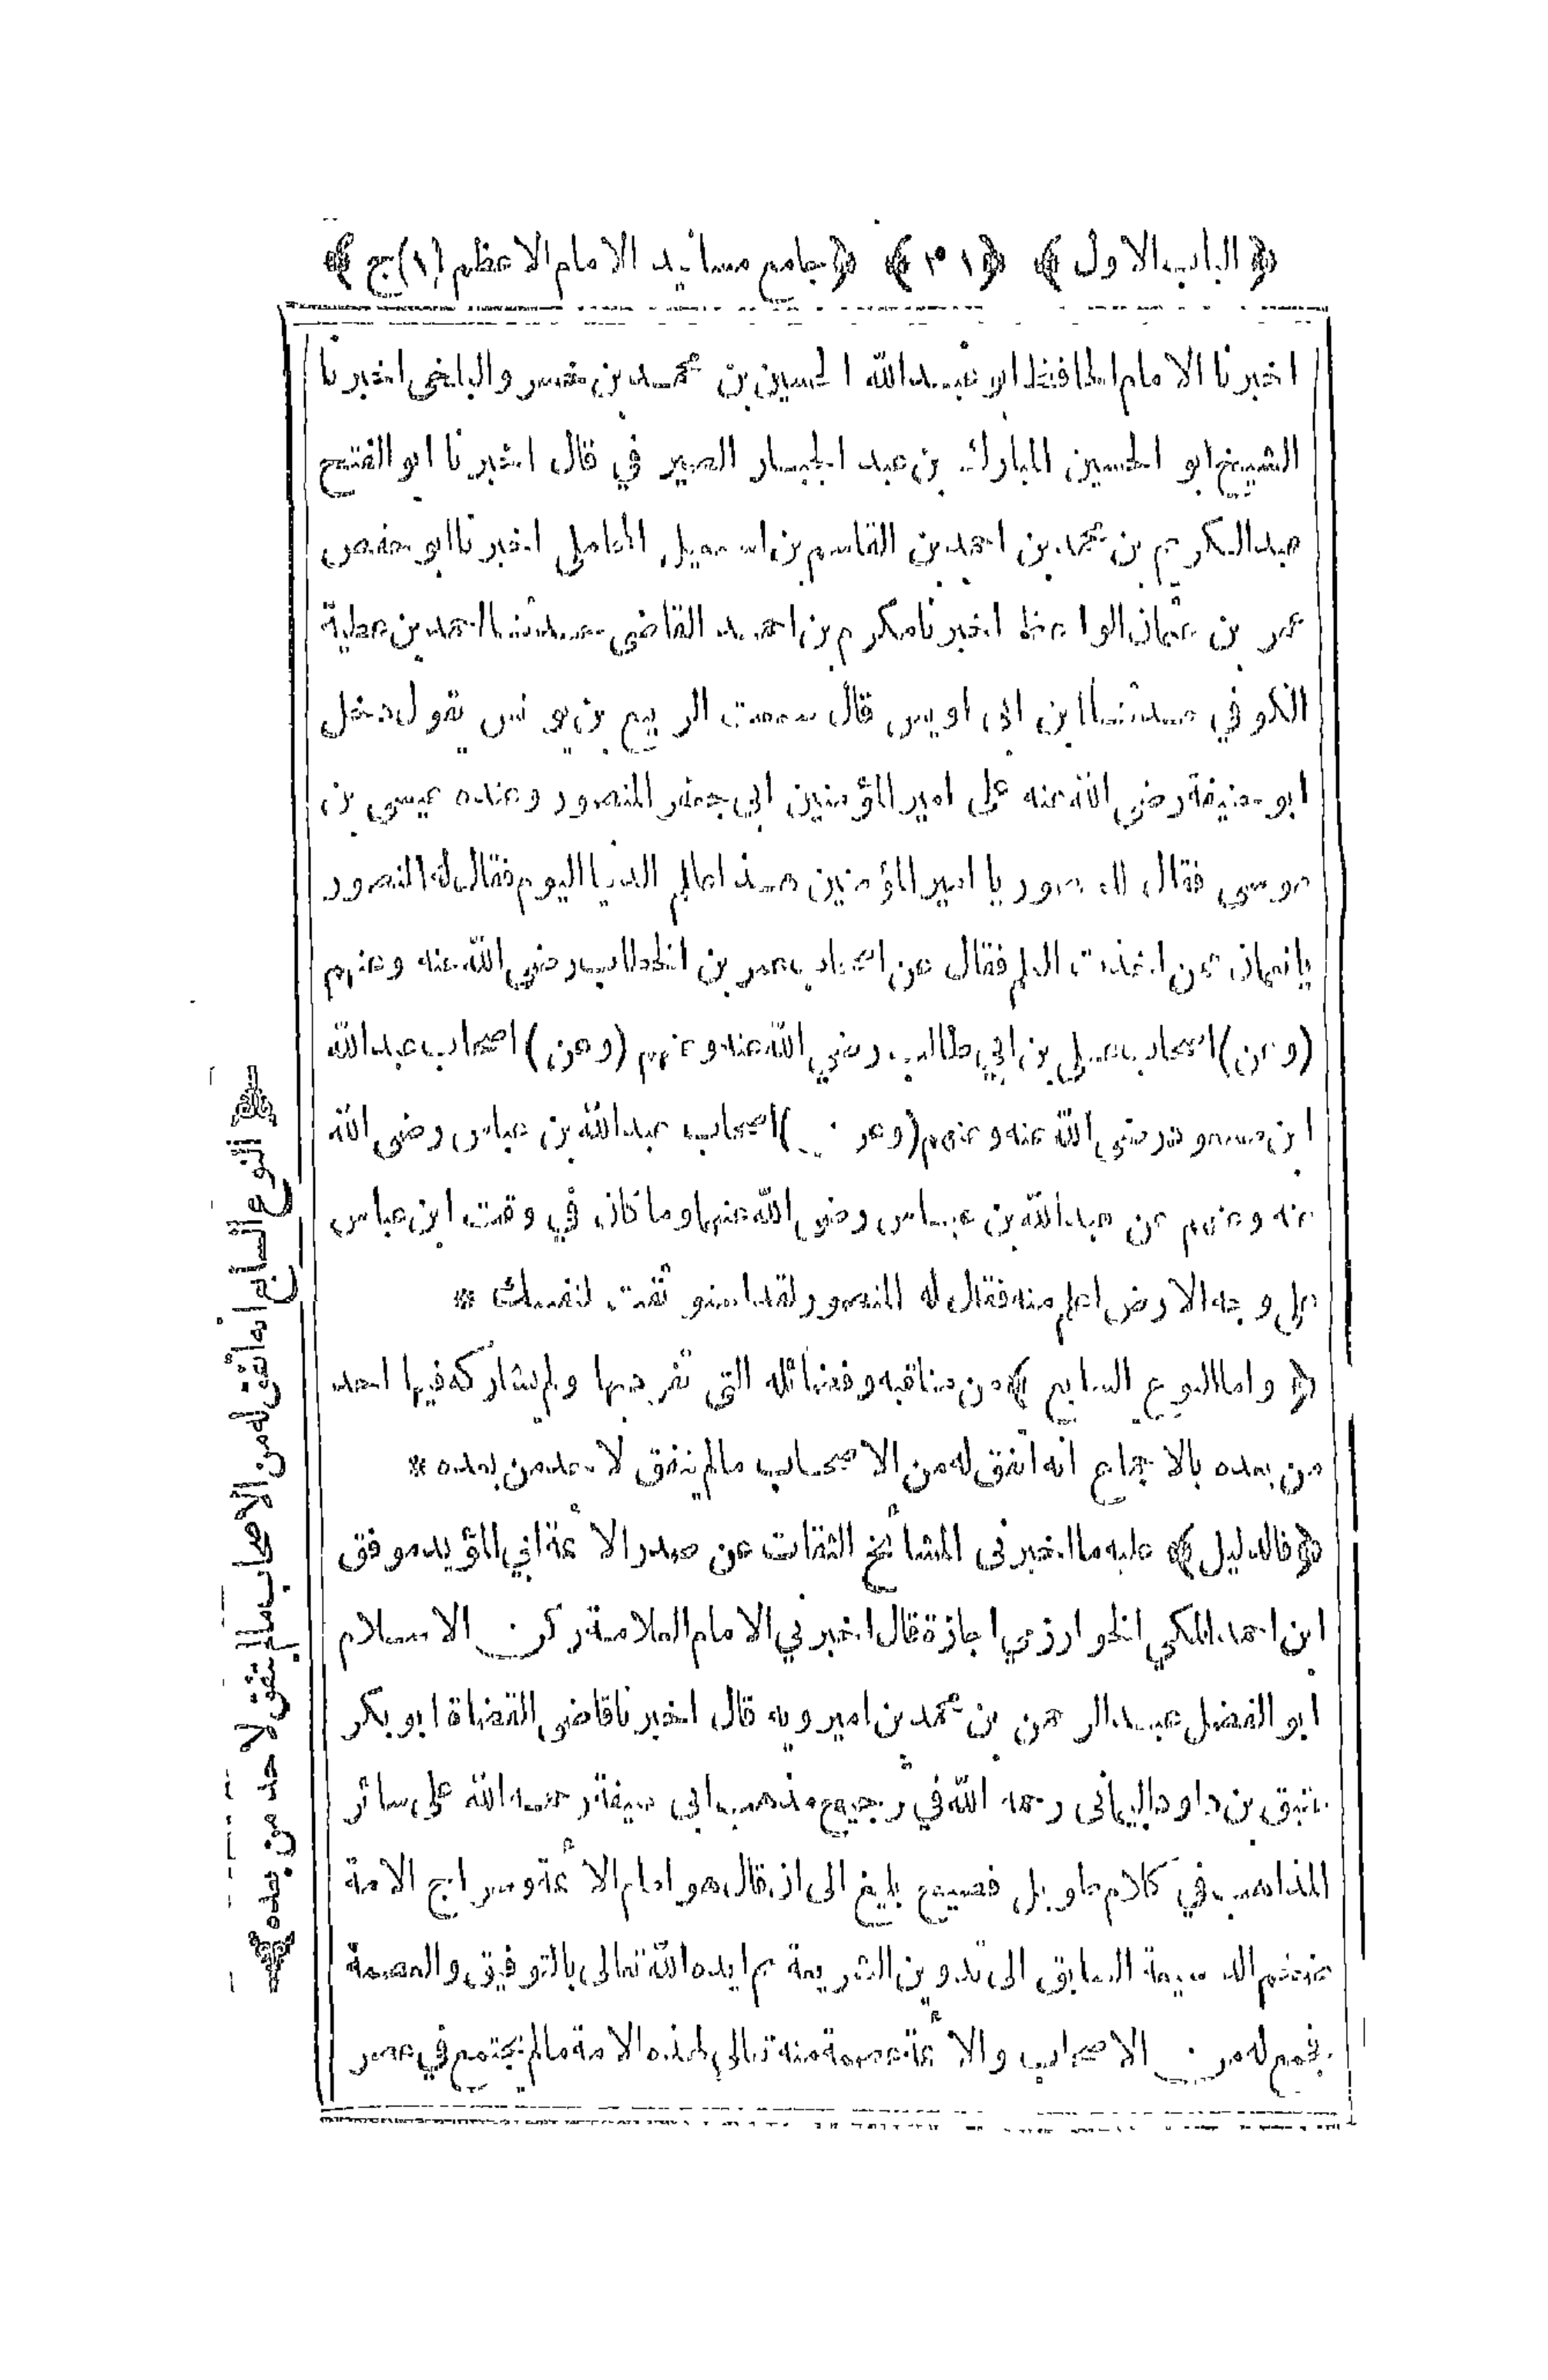 ﴿ الباب الاول ﴾ ﴿ ٣١ ﴾ ﴿ جامع مسانيد الامام الاعظم (١) ج ﴾
اخبرنا الامام الحافظ ابو عبد الله الحسين بن محمد بن خسرو البلخي اخبرنا
الشيخ ابو الحسين المبارك بن عبد الجبار الصيرفي قال اخبرنا ابو الفتح
عبد الكريم بن محمد بن احمد بن القاسم بن اسمعيل المحاملي اخبرنا ابو حفص
عمر بن عثمان الواعظ اخبرنا مكرم بن احمد القاضي حدثنا احمد بن عطية
الكوفي حدثنا ابن ابي اويس قال سمعت الربيع بن يونس يقول دخل
ابو حنيفة رضي الله عنه على امير المؤمنين ابي جعفر المنصور وعنده عيسى بن
موسى فقال للمنصور يا امير المؤمنين هذا عالم الدنيا اليوم فقال له المنصور
يا نعمان عن اخذت العلم فقال عن اصحاب عمر بن الخطاب رضي الله عنه وعنهم
(وعن) اصحاب علي بن ابي طالب رضي الله عنه وعنهم (وعن) اصحاب عبد الله
ابن مسعود رضي الله عنه وعنهم (وعن) اصحاب عبد الله بن عباس رضي الله
عنه وعنهم عن عبد الله بن عباس رضي الله عنهما وما كان في وقت ابن عباس
على وجه الارض اعلم منه فقال له المنصور لقد استوثقت لنفسك *
﴿ واما النوع السابع ﴾ من مناقبه وفضائله التي تفرد بها ولم يشاركه فيها احد
من بعده بالاجماع انه اتفق له من الاصحاب مالم يتفق لاحد من بعده *
﴿ فالدليل ﴾ عليه ما اخبرني المشائخ الثقات عن صدر الائمة ابي المؤيد موفق
ابن احمد المكي الخوارزمي اجازة قال اخبرني الامام العلامة ركن الاسلام
ابو الفضل عبد الرحمن بن محمد بن اميرويه قال اخبرنا قاضي القضاة ابو بكر
عتيق بن داود اليماني رحمه الله في ترجيح مذهب ابي حنيفة رحمه الله على سائر
المذاهب في كلام طويل فصيح بليغ الى ان قال هو امام الائمة وسراج الامة
ضخم الدسيعة السابق الى تدوين الشريعة ثم ايده الله تعالى بالتوفيق والعصمة
فجمع له من الاصحاب والائمة عصمة منه تعالى لهذه الامة مالم يجتمع في عصر
﴿ النوع السابع انه اتفق له من الاصحاب مالم يتفق لاحد من بعده ﴾